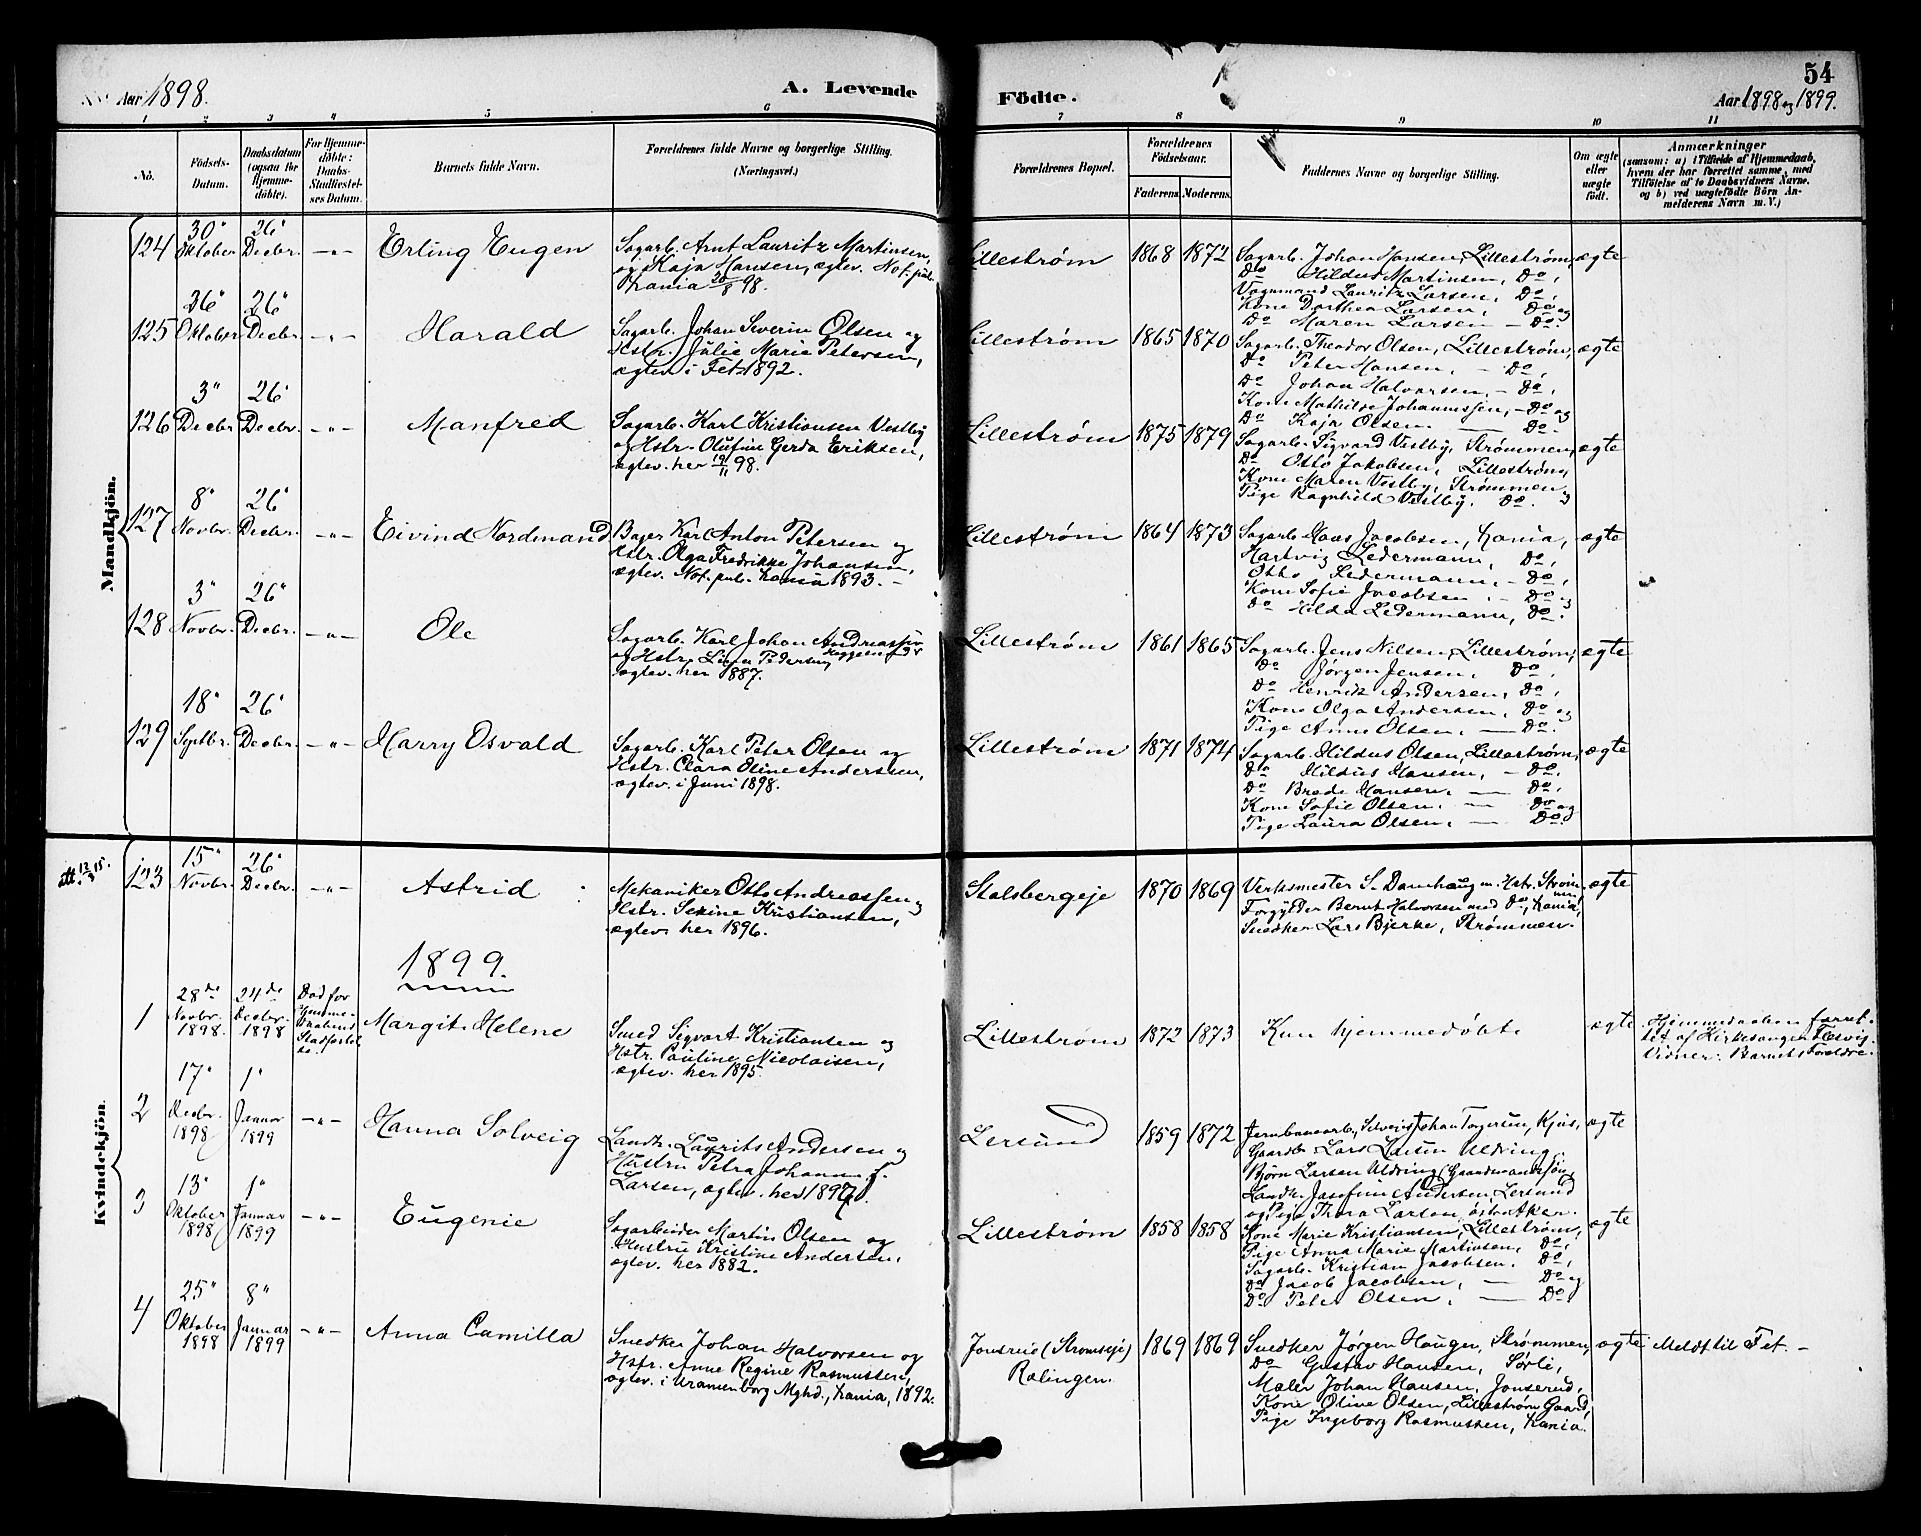 Aar 1898.
A. Levende
Födte.
54
Aar 1898 og 1899.
1 2 3 4 5 6 7 8 9 10 11
No.
Födsels-
Datum.
Daabsdatum
(ogsaa for
Hjemme-
döbte).
For Hjemme-
döbte:
Daabs-
Stadfestel-
ses Datum.
Barnets fulde Navn.
Forældrenes fulde Navne og borgerlige Stilling.
(Næringsvei.)
Forældrenes Bopæl.
Forældrenes
Födselsaar.
Faderens Moderens
Faddernes Navne og borgerlige Stilling.
Om ægte
eller
uægte
födt.
Anmærkninger
(saasom: a) i Tilfælde af Hjemmedaab,
hvem der har forrettet samme, med
Tilföielse af to Daabsvidners Navne,
og b) ved uægtefödte Börn An-
melderens Navn m. V.)
Mandkjön.
124
30'
Oktober
26'
Decbr.
-„-
Erling Eugen
Sagarb. Arnt Lauritz Martinsen,
og Kaja Hansen, ægtev. Not. pub.
Krania 20/8 98.
Lillestrøm
1868 1872
Sagarb. Johan Hansen, Lillestrøm,
Do Hildus Martinsen, Do,
Vognmand Lauritz Larsen, Do,
Kone Dorthea Larsen, Do og
Do Maren Larsen – Do.
ægte
125
26'
Oktober
26'
Decbr.
-„-
Harald
Sagarb. Johan Severin Olsen og
Hstr. Julie Marie Petersen,
ægtev. i Fet 1892.
Lillestrøm
1865 1870
Sagarb. Theodor Olsen, Lillestrøm,
Do Peter Hansen, – Do,
Do Johan Halvorsen – Do,
Kone Mathilde Johannssen, – Do og
Do Kaja Olsen — Do.
ægte
126
3'
Decbr
26'
Decbr.
-„-
Manfred
Sagarb. Karl Kristiansen Vestby
og Hstr. Olufine Gerda Eriksen,
ægtev. her 19/11 98.
Lillestrøm
1875 1879
Sagarb. Sigvard Vestby, Strømmen,
Do Otto Jakobsen, Lillestrøm,
Kone Maren Vestby, Strømmen og
Pige Ragnhild Vestby. Do.
ægte
127
8'
Novbr.
26'
Decbr.
-„-
Eivind Nordmand
Bager Karl Anton Petersen og
Hstr. Olga Fredrikke Johansen,
ægtev. Not. pub. Krania 1893. –
Lillestrøm
1864 1873
Sagarb. Haas Jacobsen, Krania,
Hartvig Ledermann, Do,
Otto Ledermann, – Do,
Kone Sofie Jacobsen, – Do og
Do Hilda Ledermann, Do.
ægte
128
3'
Novbr.
26'
Decbr.
-„-
Ole
Sagarb. Karl Johan Andreassen
og Hstr. Lina Pedersen
ægtev. her 1887.
Lillestrøm
1861 1865
Sagarb. Jens Nilsen, Lillestrøm,
Do Jørgen Jensen, Do,
Do Henrik Andersen, Do,
Kone Olga Andersen, Do og
Pige Anne Olsen, — Do.
ægte
129
18'
Septbr.
26'
Decbr.
-„-
Harry Osvald
Sagarb. Karl Peter Olsen og
Hstr. Clara Oline Andersen,
ægtev. i Juni 1898.
Lillestrøm
1871 1874
Sagarb. Hildus Olsen, Lillestrøm,
Do Hildus Hansen, – Do,
Do Brede Hansen, — Do,
Kone Sofie Olsen, — Do og
Pige Laura Olsen, — Do.
ægte
Kvindekjön.
att. 12/3 15.
123
15'
Novbr.
26'
Decbr.
-„-
Astrid
Mekaniker Otto Andreassen og
Hstr. Sexine Kristiansen,
ægtev. her 1896.
Stalsbergeje
1870 1869
Verksmester S. Damhaug m. Hstr. Strøm-
men,
Forgylder Bernt Halvorsen med do, Krania,
Snedker Lars Bjerke, Strømmen.
ægte
1899.
1
28de
Novbr.
1898.
24de
Decbr.
1898
Død før
Hjemme-
daabens
Margit Helene
Smed Sigvart Kristiansen og
Hstr. Pauline Nicolaisen,
ægtev. her 1895.
Lillestrøm
1872 1873
Kun hjemmedøbt.
ægte
Hjemmedaaben forret-
tet af Kirkesanger Flesvig.
Vidner: Barnets Forældre.
2
17'
Decbr.
1898
1'
Januar
1899
-„-
Hanna Solveig
Landh. Laurits Andersen og
Hustru Petra Johanne
Larsen, ægtev. her 1897.
Lersund
1859 1872
Jernbanearb. Johan Tagesen, Kjus,
Gaardb. Lars Larsen Uldring,
Bjørn Larsen Uldring (Gaardmandssøn,
Landh. Josefine Andersen, Lersund
og Pige Thora Larsen, østre Aker.
ægte
3
13'
Oktober
1898
1'
Januar
1899
-„-
Eugenie
Sagarbeider Martin Olsen og
Hustru Kristine Andersen,
ægtev. her 1882.
Lillestrøm
1858 1858
Kone Marie Kristiansen, Lillestrøm,
Pige Anna Marie Martinsen, Do,
Sagarb. Kristian Jacobsen. Do,
Do Jacob Jacobsen, — Do og
Do Peter Olsen, — Do.
ægte
4
25'
Oktober
1898
8'
Januar
1899
-„-
Anna Camilla
Snedker Johan Halvorsen og
Hstr. Anne Regine Rasmussen,
ægtev. i Uranienborg Mghd., Krania, 1892.
Jonsrud (Strømseje)
Rælingen.
1869 1869
Snedker Jørgen Hauger, Strømmen,
Do Gustav Hansen, Sørli,
Maler Johan Hansen, Jonserud,
Kone Oline Olsen, Lillestrøm Gaard,
Pige Ingeborg Rasmussen, Krania.
ægte
Meldt til Fet. –